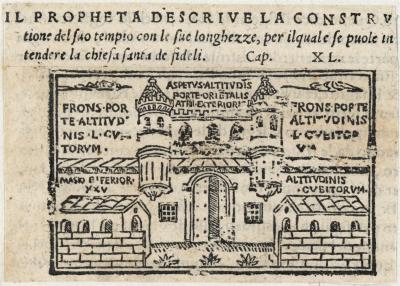 IL PROPHETA DESCRIVE LA CONSTRV
tione del suo tempio con le sue longhezze, per ilquale se puole in
tendere la chiesa santa de fideli. Cap. XL.
ASPETVS·ALTITVDĪS
PORTE·ORIĒTALIS
ATRI·EXTERIORI
FRONS·POR
TE·ALTITVD
NIS·L·CVBI
TORVM·
FRONS·POR TE
ALTITVDINIS
L·CVBITOR
VM
MASIO·ĪFERIOR·
XXV
ALTITVDINIS
CVBITORVM·